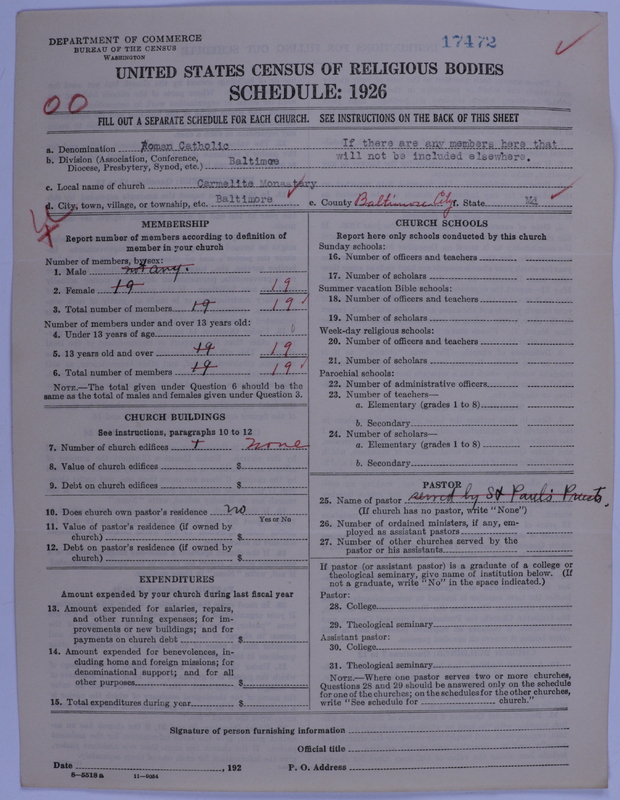 DEPARTMENT OF COMMERCE
BUREAU OF THE CENSUS
WASHINGTON
17472
UNITED STATES CENSUS OF RELIGIOUS BODIES
SCHEDULE: 1926
00
FILL OUT A SEPARATE SCHEDULE FOR EACH CHURCH. SEE INSTRUCTIONS ON THE BACK OF THIS SHEET
a. Denomination Roman Catholic
If there are any members here that
will not be included elsewhere.
b. Division (Association, Conference,
Diocese, Presbytery, Synod, etc.) Baltimore
c. Local name of church Carmelite Monastery
d. City, town, village, or township, etc. Baltimore e. County Baltimore City f. State Md
MEMBERSHIP
Report number of members according to definition of
member in your church
Number of members, by sex:
1. Male not any.
2. Female 19 19
3. Total number of members 19 19
Number of members under and over 13 years old:
4. Under 13 years of age
5. 13 years old and over 19 19
6. Total number of members 19 19
NOTE.—The total given under Question 6 should be the
same as the total of males and females given under Question 3.
CHURCH BUILDINGS
See instructions, paragraphs 10 to 12
7. Number of church edifices none
8. Value of church edifices $
9. Debt on church edifices $
10. Does church own pastor's residence no
Yes or No
11. Value of pastor's residence (if owned by
church) $
12. Debt on pastor's residence (if owned by
church) $
EXPENDITURES
Amount expended by your church during last fiscal year
13. Amount expended for salaries, repairs,
and other running expenses; for im-
provements or new buildings; and for
payments on church debt $
14. Amount expended for benevolences, in-
cluding home and foreign missions; for
denominational support; and for all
other purposes $
15. Total expenditures during year $
CHURCH SCHOOLS
Report here only schools conducted by this church
Sunday schools:
16. Number of officers and teachers
17. Number of scholars
Summer vacation Bible schools:
18. Number of officers and teachers
19. Number of scholars
Week-day religious schools:
20. Number of officers and teachers
21. Number of scholars
Parochial schools:
22. Number of administrative officers
23. Number of teachers—
a. Elementary (grades 1 to 8)
b. Secondary
24. Number of scholars—
a. Elementary (grades 1 to 8)
b. Secondary
PASTOR
25. Name of pastor served by St Paul's Priests.
(If church has no pastor, write "None")
26. Number of ordained ministers, if any, em-
ployed as assistant pastors
27. Number of other churches served by the
pastor or his assistants
If pastor (or assistant pastor) is a graduate of a college or
theological seminary, give name of institution below. (If
not a graduate, write "No" in the space indicated.)
Pastor:
28. College
29. Theological seminary
Assistant pastor:
30. College
31. Theological seminary
NOTE.—Where one pastor serves two or more churches,
Questions 28 and 29 should be answered only on the schedule
for one of the churches; on the schedules for the other churches,
write "See schedule for church."
Signature of person furnishing information
Official title
Date , 192 P. O. Address
8—5518 a 11—9354